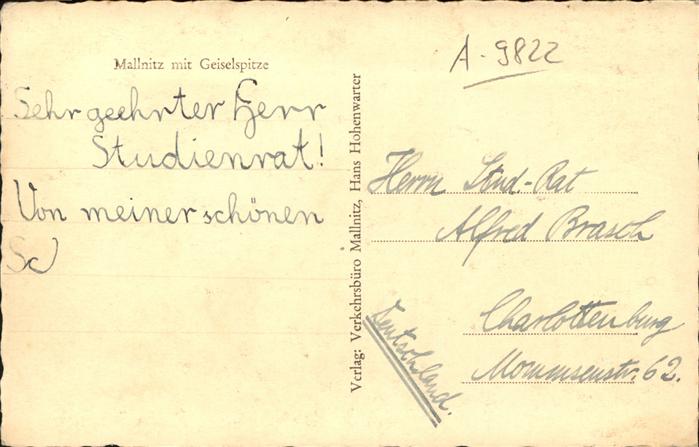 Mallnitz mit Geiselspitze
A-9822
Sehr geehrter Herr
Studienrat!
Von meiner schönen
Sc
Verlag: Verkehrsbüro Mallnitz, Hans Hohenwarter
Herrn Stud.-Rat
Alfred Brasch
Charlottenburg
Mommsenstr. 62.
Deutschland.